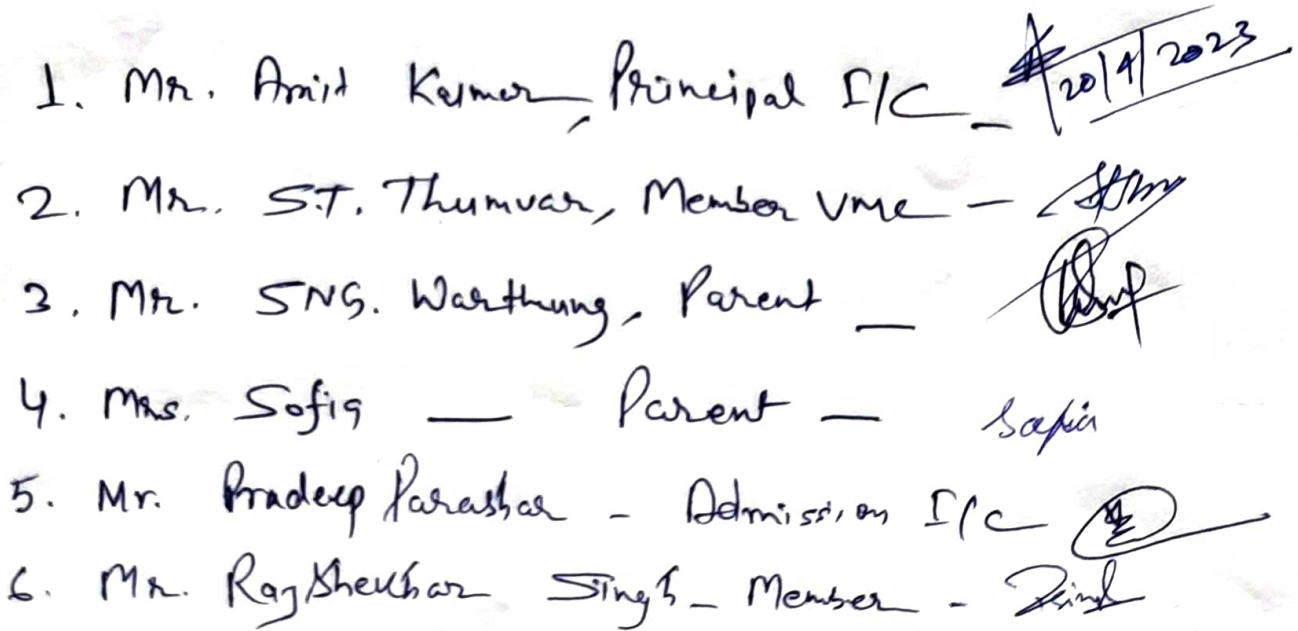 1. Mr. Amit Kumar, Principal I/C - 20/4/2023
2. Mr. S.T. Thumvar, Member VMC -
3. Mr. SNG. Warthung, Parent -
4. Mrs. Sofia - Parent - Sofia
5. Mr. Pradeep Parashar - Admission I/C
6. Mr. Raj Shekhar Singh - Member -